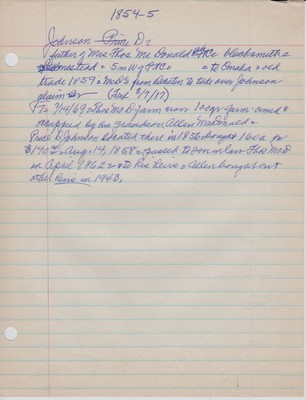 1854-5
Johnson Price D
father of Mrs Thos Mc Donald blacksmith
homestead 5 mi W to Omaha
trade 1859 McD's from Decatur to take over Johnson
claim (Sent 3/9/17)
7/4/69 Thos Mc D farm now 100 yr farm owned &
occupied by his grandson Allen McDonald
Price D Johnson located there in 1855 bought 160 a for
$140 Aug. 14, 1858 passed to son in law Thos McD
in April 1862 & to his heirs Allen bought out
other heirs in 1943.